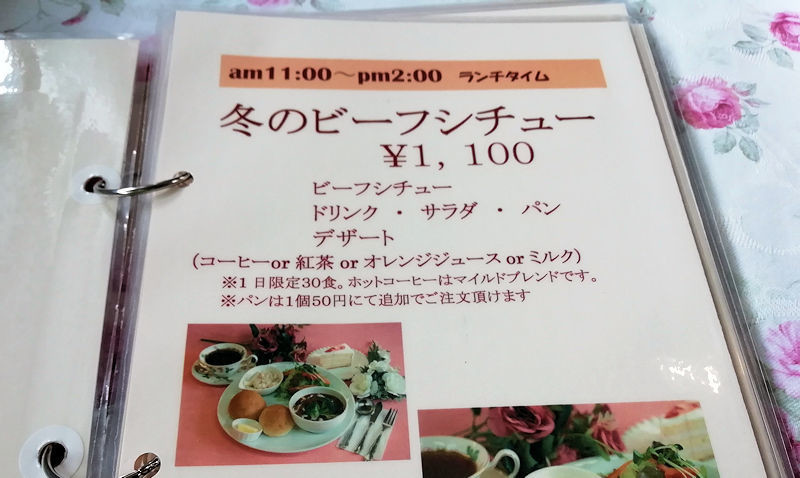 am11:00～pm2:00 ランチタイム
冬のビーフシチュー
¥1,100
ビーフシチュー
ドリンク ・ サラダ ・ パン
デザート
(コーヒーor 紅茶 or オレンジジュース or ミルク)
※1日限定30食。ホットコーヒーはマイルドブレンドです。
※パンは1個50円にて追加でご注文頂けます